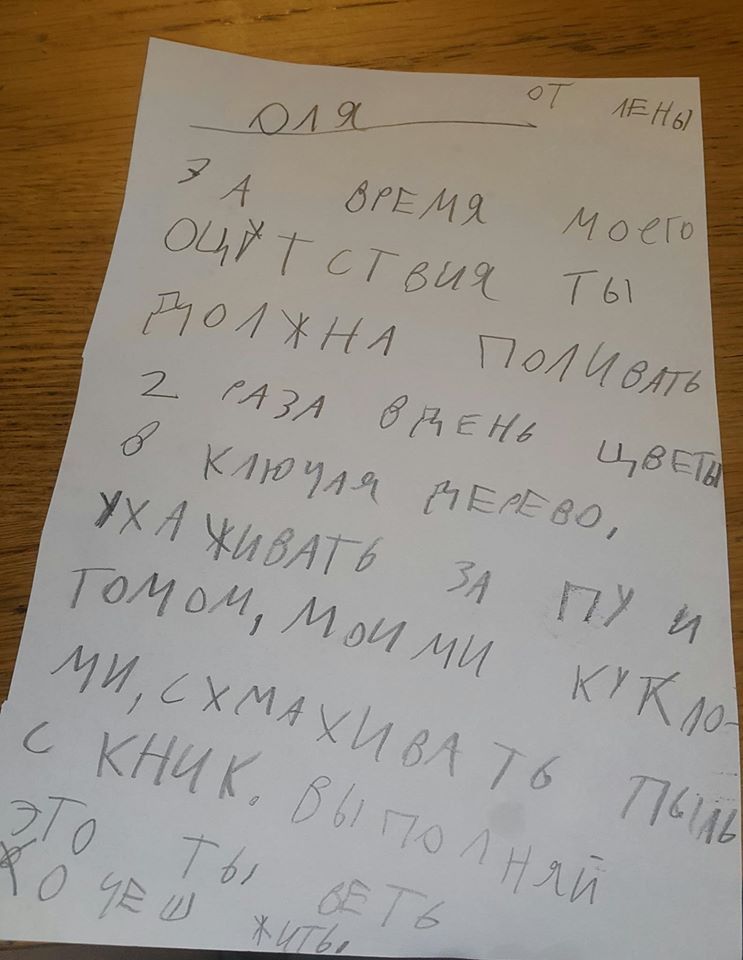 ОТ ЛЕНЫ
ОЛЯ
ЗА ВРЕМЯ МОЕГО
ОЦУТСТВИЯ ТЫ
ДОЛЖНА ПОЛИВАТЬ
2 РАЗА ВДЕНЬ ЦВЕТЫ
В КЛЮЧАЯ ДЕРЕВО,
УХАЖИВАТЬ ЗА ПУ И
ТОМОМ, МОИМИ КУКЛО-
МИ, СХМАХИВАТЬ ПЫЛЬ
С КНИК. ВЫПОЛНЯЙ
ЭТО ТЫ, ВЕТЬ
ХОЧЕШ ЖИТЬ.